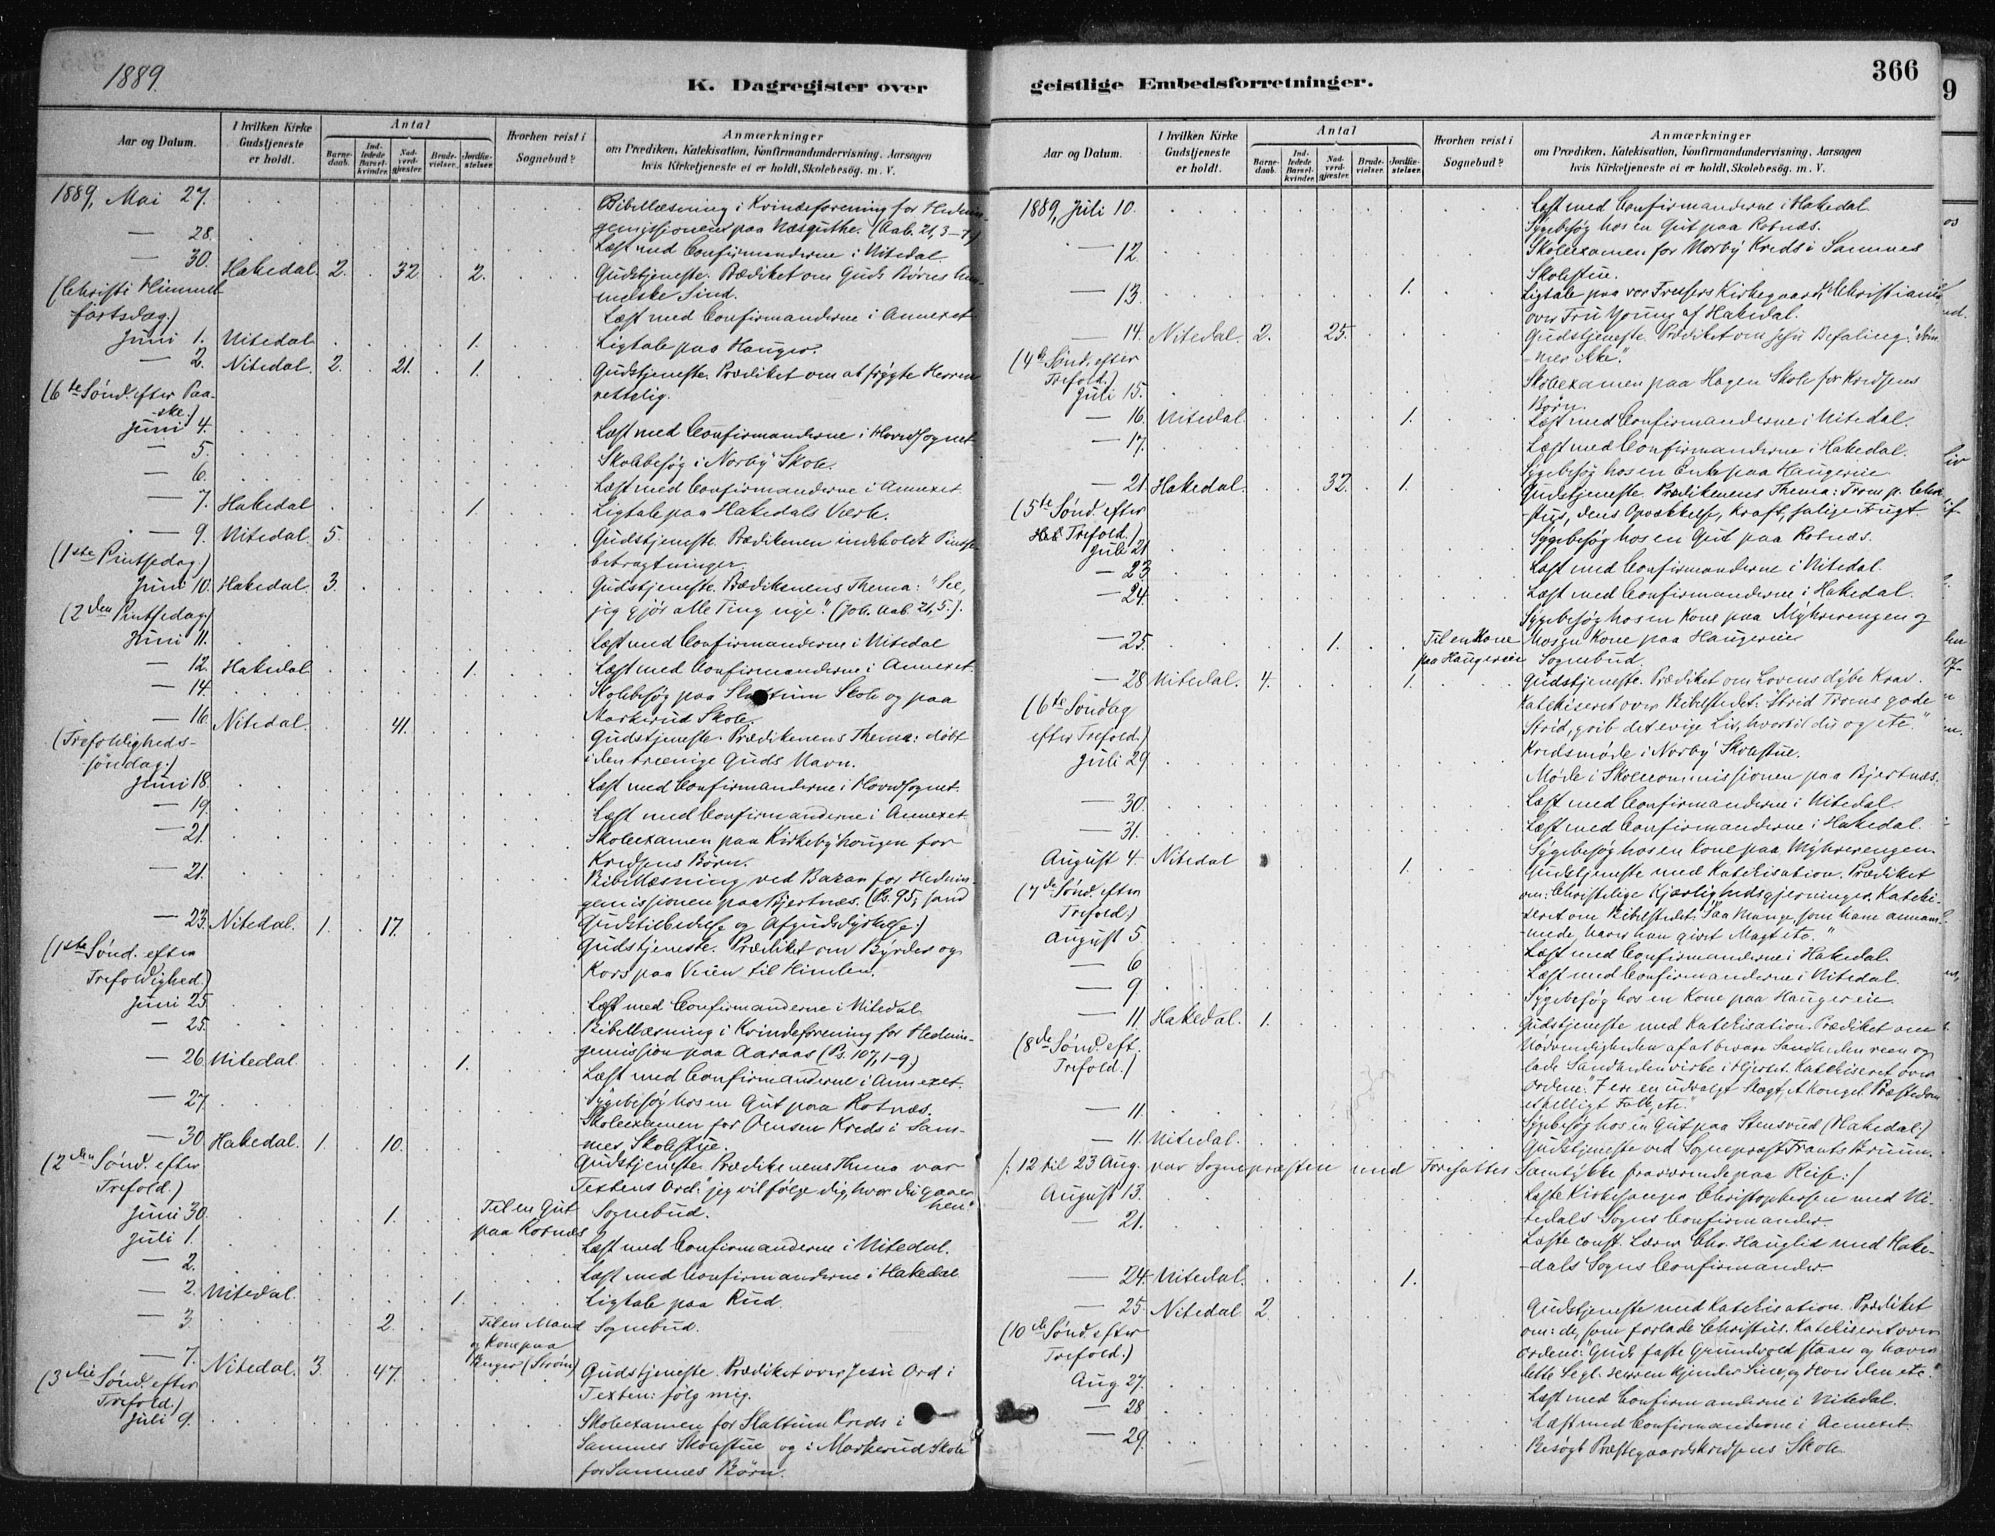 1889.
K. Dagregister over
Aar og Datum.
I hvilken Kirke Gudstjeneste er holdt.
Antal
Barnedaab.
Indledede Barselkvinder.
Nadverdgjæster.
Brudevielser.
Jordfæstelser.
Hvorhen reist i Sognebud?
Anmærkninger
om Prædiken, Katekisation, Konfirmandundervisning, Aarsagen
hvis Kirketjeneste ei er holdt, Skolebesøg. m. V.
1889, Mai 27. Bibellæsning i Kvindeforening for Hednin-
gemissionen paa Næsguthe. (Aab. 21, 3-7.)
— 28. Læst med Confirmanderne i Nitedal.
— 30. Hakedal. 2. 32. 2. Gudstjeneste. Prædiket om Guds Børns him-
(Christi Himmel- melske Sind.
fartsdag.) Læst med Confirmanderne i Annexet.
Juni 1. Nitedal 1. Ligtale paa Hauger.
— 2. Nitedal. 2. 21. 1. Gudstjeneste. Prædiket om at frygte Herren
(6te Sønd. efter Paa- rettelig.
ske.)
Juni 4. Læst med Confirmanderne i Hovedsognet
— 5. Skolebesøg i Norby Skole.
— 6. Læst med Confirmanderne i Annexet.
— 7. Hakedal 1. Ligtale paa Hakedals Værk.
— 9. Nitedal. 5. Gudstjeneste. Prædikenen indeholdt Pintse-
(1ste Pintsedag) betragtninger.
Juni 10. Hakedal. 3. Gudstjeneste. Prædikenens Thema: "See,
(2den Pintsedag.) jeg gjør alle Ting nye." (Joh. Aab. 21, 5.)
Juni 11. Læst med Confirmanderne i Nitedal
— 12. Hakedal. 1. Læst med Confirmanderne i Annexet.
— 14. Skolebesøg paa Slattum Skole og paa
Markerud Skole.
— 16. Nitedal. 41. Gudstjeneste. Prædikenens Thema: døbt
(Trefoldigheds- i den treenige Guds Navn.
søndag.)
Juni 18. Læst med Confirmanderne i Hovedsognet.
— 19. Læst med Confirmanderne i Annexet.
— 21. Skoleexamen paa Kirkebyhougen for
Kredsens Børn.
— 21. Bibellæsning ved Bazar for Hednin-
gemissionen paa Bjertnæs. (Ps. 95, sand
— 23. Nitedal. 1. 17. Gudstilbedelse og Afgudsdyrkelse.)
(1ste Sønd. efter Gudstjeneste. Prædiket om Byrder og
Trefoldighed.) Kors paa Veien til Himlen.
Juni 25. Læst med Confirmanderne i Nitedal.
— 25. Bibellæsning i Kvindeforening for Hednin-
gemission paa Aaraas (Ps. 107, 1-9)
— 26. Nitedal. 1. Læst med Confirmanderne i Annexet.
— 27 Sygebesøg hos en Gut paa Rotnæs.
Skoleexamen for Kreds i Sam-
— 30. Hakedal. 1. 10. mes Skolestue.
(2den Sønd. efter Gudstjeneste. Prædikenens Thema var
Trefold.) Textens Ord: "jeg vil følge dig, hvor du gaaer
hen"
Juni 30. 1. Til en Gut paa Rotnæs Sognebud.
Juli 1. Læst med Confirmanderne i Nitedal.
— 2. Læst med Confirmanderne i Hakedal
— 2. Nitedal. 1. Ligtale paa Rud.
— 3. 2. Til en Mand og Kone paa (Strøm) Sognebud.
— 7. Nitedal. 3. 47. Gudstjeneste. Prædiket over Jesu Ord i
(3die Sønd. efter Texten: følg mig.
Trefold.)
Juli 9. Skoleexamen for Slattum Kreds i
Sammes Skolestue og i Markerud Skole
for Sammes Børn.
366
geistlige Embedsforretninger.
Aar og Datum.
I hvilken Kirke Gudstjeneste er holdt.
Antal
Barnedaab.
Indledede Barselkvinder.
Nadverdgjæster.
Brudevielser.
Jordfæstelser.
Hvorhen reist i Sognebud?
Anmærkninger
om Prædiken, Katekisation, Konfirmandundervisning, Aarsagen
hvis Kirketjeneste ei er holdt, Skolebesøg. m. V.
1889, Juli 10. Læst med Confirmanderne i Hakedal.
Sygebesøg hos en Gut paa Rotnæs.
— 12. Skoleexamen for Norby Kreds i Sammes
Skolestue.
— 13. 1. Ligtale paa vor Frelsers Kirkegaard, Christiania
over Fru Young af Hakedal.
— 14. Nitedal. 2. 25. Gudstjeneste. Prædiket om Jesu Befaling: "døm-
(4de Sønd. efter mer ikke."
Trefold.)
Juli 15. Skoleexamen paa Hagen Skole for Kredsens
Børn.
— 16. Nitedal 1. Læst med Confirmanderne i Nitedal.
— 17. Læst med Confirmanderne i Hakedal.
Sygebesøg hos en Enke paa Haugereie.
— 21. Hakedal. 32. 1. Gudstjeneste. Prædikenens Thema: Troen p. Chri-
(5te Sønd. efter stus, dens Opvækkelse, Kraft, salige Frugt.
Trefold.)
Juli 21 Sygebesøg hos en Gut paa Rotnæs.
— 23 Læst med Confirmanderne i Nitedal.
— 24. Læst med Confirmanderne i Hakedal.
Sygebesøg hos en Kone paa Myhrerengen og
— 25. 1. Til en Kone paa Haugereie hos en Kone paa Haugereie
Sognebud.
— 28 Nitedal. 4. 1. Gudstjeneste. Prædiket om Lovens dybe Krav.
(6te Søndag Katekiseret over Bibelstedet: "Strid Troens gode
efter Trefold.) Strid, grib det evige Liv, hvortil du og etc."
Kredsmøde i Norby Skolestue.
Juli 29 Møde i Skolecommissionen paa Bjertnæs.
— 30. Læst med Confirmanderne i Nitedal.
— 31. Læst med Confirmanderne i Hakedal.
Sygebesøg hos en Kone paa Myhrerengen.
August 4. Nitedal 1. Gudstjeneste med Katekisation. Prædiket
(7de Sønd. efter om: Christelige Kjærlighedsgjerninger. Kateki-
Trefold.) seret om Bibelstedet: "Saa Mange som have annam-
mede haver han givet Magt etc."
August 5 Læst med Confirmanderne i Hakedal.
— 6 Læst med Confirmanderne i Nitedal.
— 9 Sygebesøg hos en Kone paa Haugereie.
— 11 Hakedal. 1. Gudstjeneste med Katekisation. Prædiket om
(8de Sønd. eft. Nødvendigheden af at bevare Sandheden reen og
Trefold.) lade Sandheden virke i Hjertet. Katekiseret over
Ordene: "I ere en udvalgt Slægt, et kongel. Præstedom
Folk, etc."
— 11. Sygebesøg hos en Gut paa Stensrud (Hakedal.)
— 11. Nitedal. Gudstjeneste ved Sognepræst Frants Bruun.
(: 12 til 23 Aug. var Sognepræsten med Foresattes Samtykke fraværende paa Reise:)
August 13. Læste Kirkesanger Christophersen med Ni-
tedals Sogns Confirmander.
— 21. Læste const. Lærer Chr. Hauglid med Hake-
dals Sogns Confirmander
— 24. Nitedal. 1.
— 25. Nitedal 2 Gudstjeneste med Katekisation. Prædiket
(10de Sønd. efter om: de, som forlade Christus. Katekiseret over
Trefold.) Ordene: "Guds faste Grundvold staaer og haver
dette Segl: Herren kjender Sine, og Hver den etc."
Aug 27. Læst med Confirmanderne i Nitedal.
— 28 Læst med Confirmanderne i Annexet
— 29. Besøgt Præstegaardskredsens Skole.